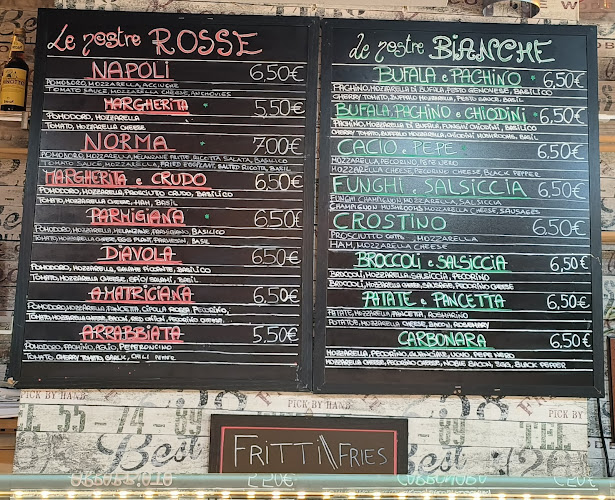 Le nostre ROSSE
NAPOLI 6,50€
POMODORO, MOZZARELLA, ACCIUGHE
TOMATO SAUCE, MOZZARELLA CHEESE, ANCHOVIES
MARGHERITA 5,50€
POMODORO, MOZZARELLA
TOMATO, MOZZARELLA CHEESE
NORMA 7,00€
POMODORO, MOZZARELLA, MELANZANE FRITTE, RICOTTA SALATA, BASILICO
TOMATO SAUCE, MOZZARELLA CHEESE, FRIED EGGPLANT, SALTED RICOTTA, BASIL
MARGHERITA e CRUDO 6,50€
POMODORO, MOZZARELLA, PROSCIUTTO CRUDO, BASILICO
TOMATO, MOZZARELLA CHEESE, HAM, BASIL
PARMIGIANA 6,50€
POMODORO, MOZZARELLA, MELANZANE, PARMIGIANO, BASILICO
TOMATO, MOZZARELLA CHEESE, EGG PLANT, PARMESAN, BASIL
DIAVOLA 6,50€
POMODORO, MOZZARELLA, SALAME PICCANTE, BASILICO
TOMATO, MOZZARELLA CHEESE, SPICY SALAMI, BASIL
AMATRICIANA 6,50€
POMODORO, MOZZARELLA, PANCETTA, CIPOLLA ROSSA, PECORINO,
TOMATO, MOZZARELLA CHEESE, BACON, RED ONION, PECORINO CHEESE
ARRABBIATA 5,50€
POMODORO, PACHINO, AGLIO, PEPERONCINO
TOMATO, CHERRY TOMATO, GARLIC, CHILI
Le nostre BIANCHE
BUFALA e PACHINO 6,50€
PACHINO, MOZZARELLA DI BUFALA, PESTO GENOVESE, BASILICO
CHERRY TOMATO, BUFALO MOZZARELLA, PESTO SAUCE, BASIL
BUFALA, PACHINO e CHIODINI 6,50€
PACHINO, MOZZARELLA DI BUFALA, FUNGHI CHIODINI, BASILICO
CHERRY TOMATO, BUFALO MOZZARELLA, CHIODINI MUSHROOMS, BASIL
CACIO e PEPE 6,50€
MOZZARELLA, PECORINO, PEPE NERO
MOZZARELLA CHEESE, PECORINO CHEESE, BLACK PEPPER
FUNGHI e SALSICCIA 6,50€
FUNGHI CHAMPIGNON, MOZZARELLA, SALSICCIA
CHAMPIGNON MUSHROOMS, MOZZARELLA CHEESE, SAUSAGES
CROSTINO 6,50€
PROSCIUTTO COTTO, MOZZARELLA
HAM, MOZZARELLA CHEESE
BROCCOLI e SALSICCIA 6,50€
BROCCOLI, MOZZARELLA, SALSICCIA, PECORINO
BROCCOLI, MOZZARELLA CHEESE, SAUSAGES, PECORINO CHEESE
PATATE e PANCETTA 6,50€
PATATE, MOZZARELLA, PANCETTA, ROSMARINO
POTATOES, MOZZARELLA CHEESE, BACON, ROSEMARY
CARBONARA 6,50€
MOZZARELLA, PECORINO, GUANCIALE, UOVO, PEPE NERO
MOZZARELLA CHEESE, PECORINO CHEESE, BACON, EGG, BLACK PEPPER
PICK BY HAND
PICK BY HAND
55 74 89
89 TEL
Best
Best
FRITTI\\FRIES